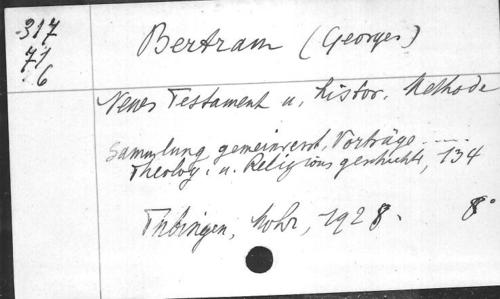 317
71
6
Bertram (Georges)
Neues Testament u. histor. Methode
Sammlung gemeinverst. Vorträge.....
Theolog. u. Religionsgeschichte, 134
Tübingen, Mohr, 1928. 8°